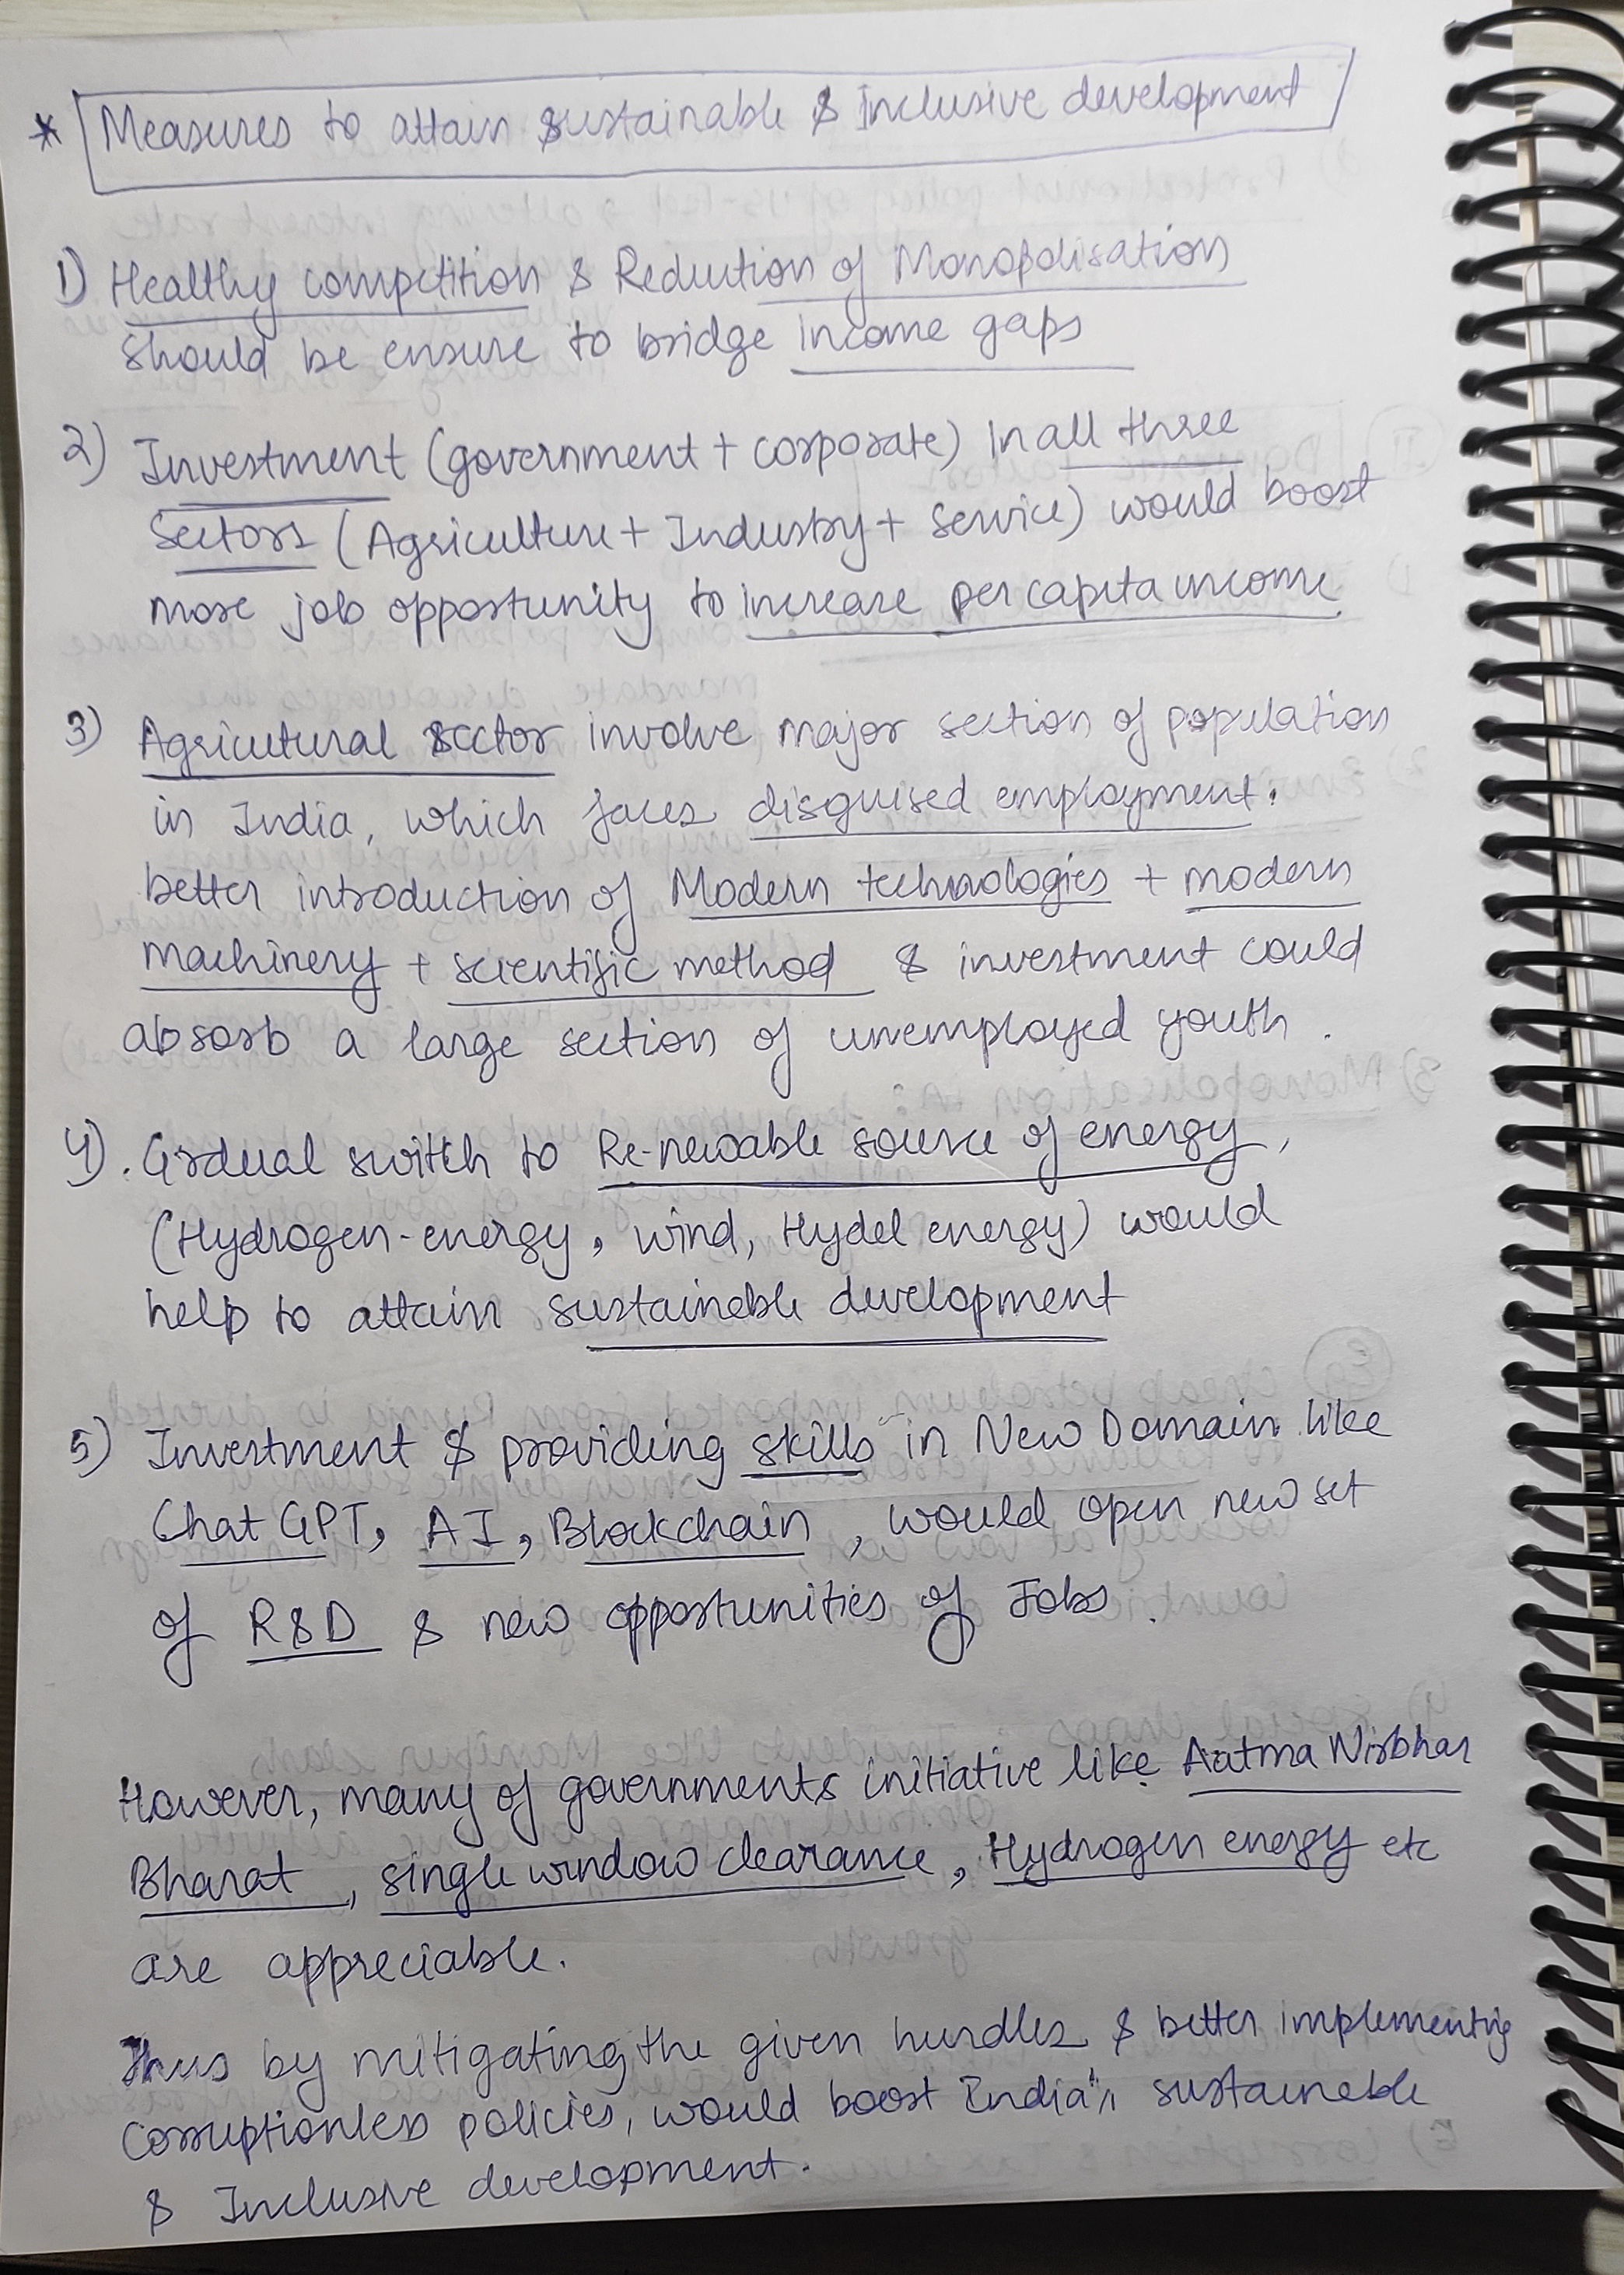 * Measures to attain sustainable & Inclusive development
1) Healthy competition & Reduction of Monopolisation
should be ensure to bridge income gaps
2) Investment (government + corporate) In all three
Sectors (Agriculture + Industry + Service) would boost
more job opportunity to increase per capita income
3) Agricutural sector involve major section of population
in India, which faces disguised employment.
better introduction of Modern technologies + modern
machinery + scientific method & investment could
absorb a large section of unemployed youth.
4). Grdual switch to Re-newable source of energy,
(Hydrogen-energy, wind, Hydel energy) would
help to attain sustaineble development
5) Investment & providing skills in New Domain like
Chat GPT, AI, Blockchain, would open new set
of R&D & new opportunities of Jobs.
However, many of governments initiative like Aatma Nirbhar
Bharat, single window clearance, Hydrogen energy etc
are appreciable.
Thus by mitigating the given hurdles & better implementing
corruptionless policies, would boost India's sustaineble
& Inclusive development.